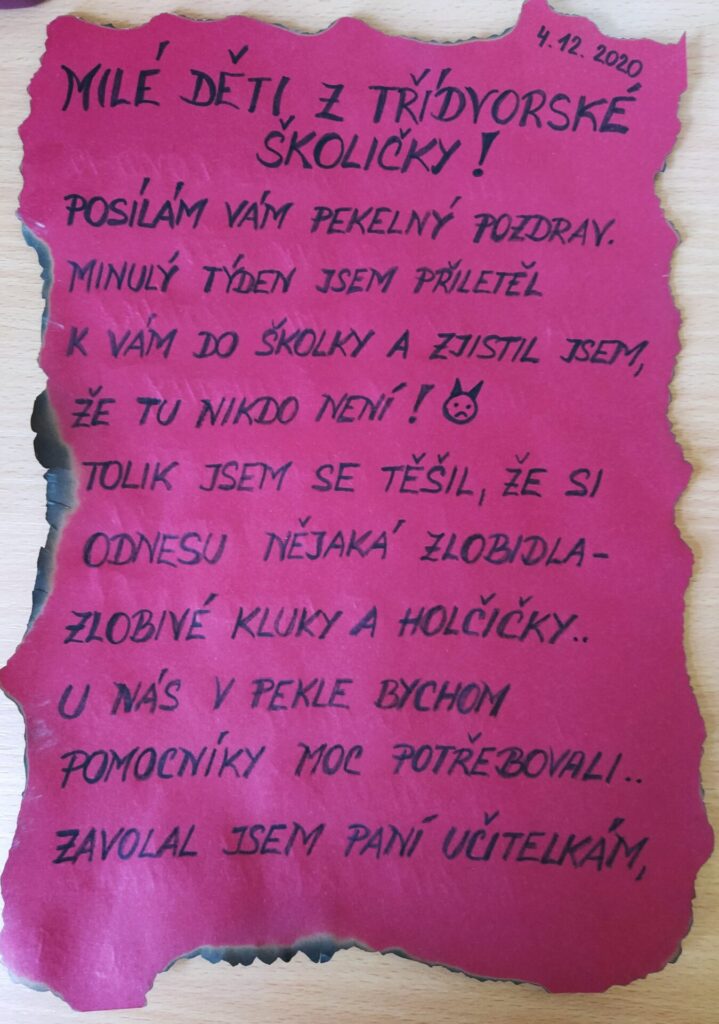 4.12.2020
MILÉ DĚTI Z TŘÍDVORSKÉ
ŠKOLIČKY!
POSÍLÁM VÁM PEKELNÝ POZDRAV.
MINULÝ TÝDEN JSEM PŘILETĚL
K VÁM DO ŠKOLKY A ZJISTIL JSEM,
ŽE TU NIKDO NENÍ!
TOLIK JSEM SE TĚŠIL, ŽE SI
ODNESU NĚJAKÁ ZLOBIDLA-
ZLOBIVÉ KLUKY A HOLČIČKY..
U NÁS V PEKLE BYCHOM
POMOCNÍKY MOC POTŘEBOVALI..
ZAVOLAL JSEM PANÍ UČITELKÁM,